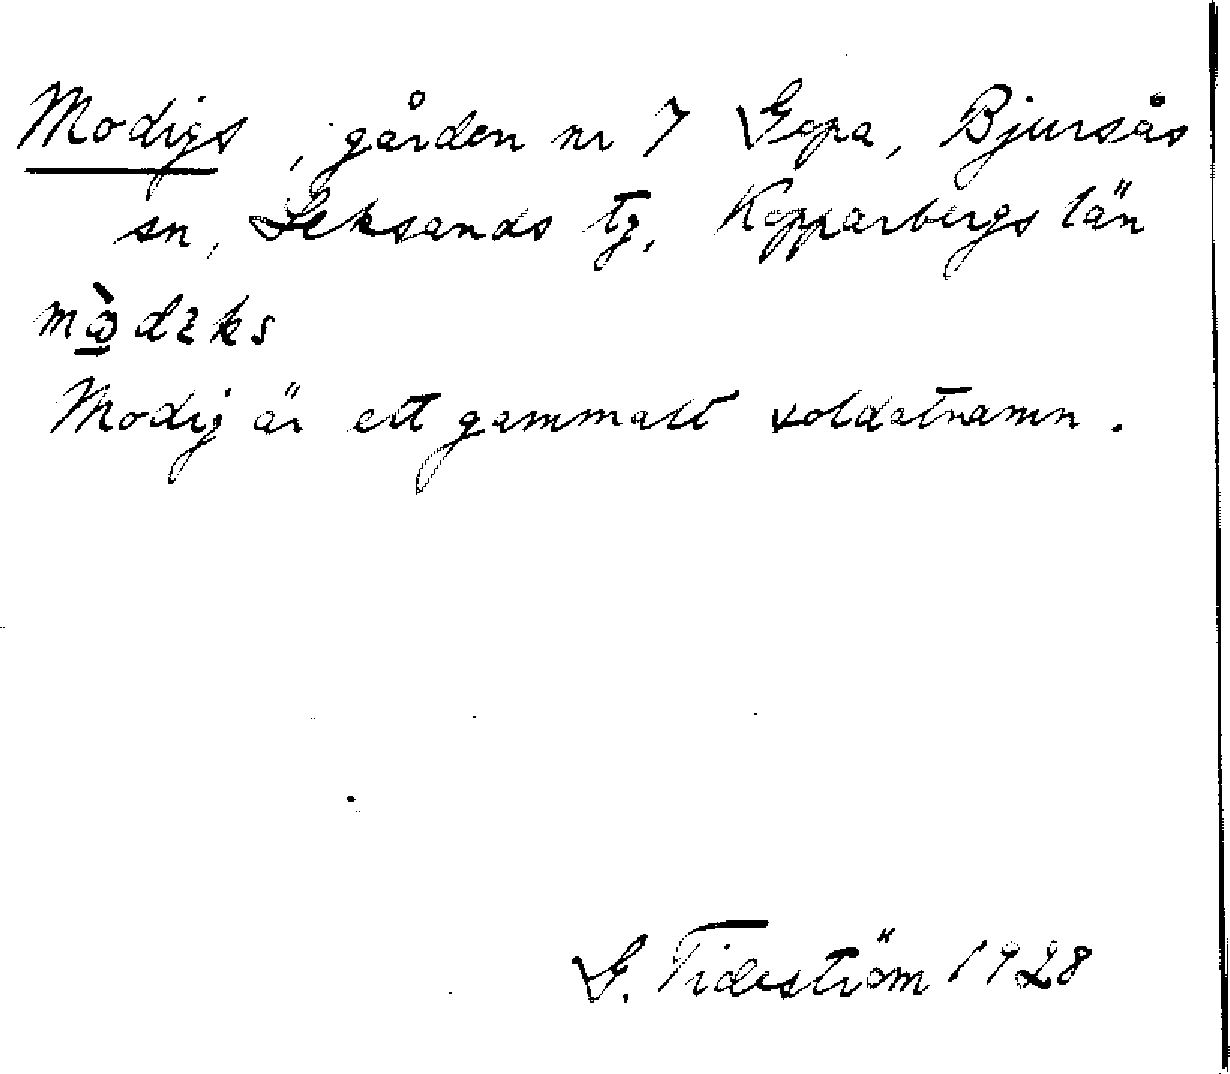 Modigs, gården nr 7 Gopa, Bjursås
sn, Leksands tg, Kopparbergs län
mò̲dıks
Modig är ett gammalt soldatnamn.
G. Tideström 1928